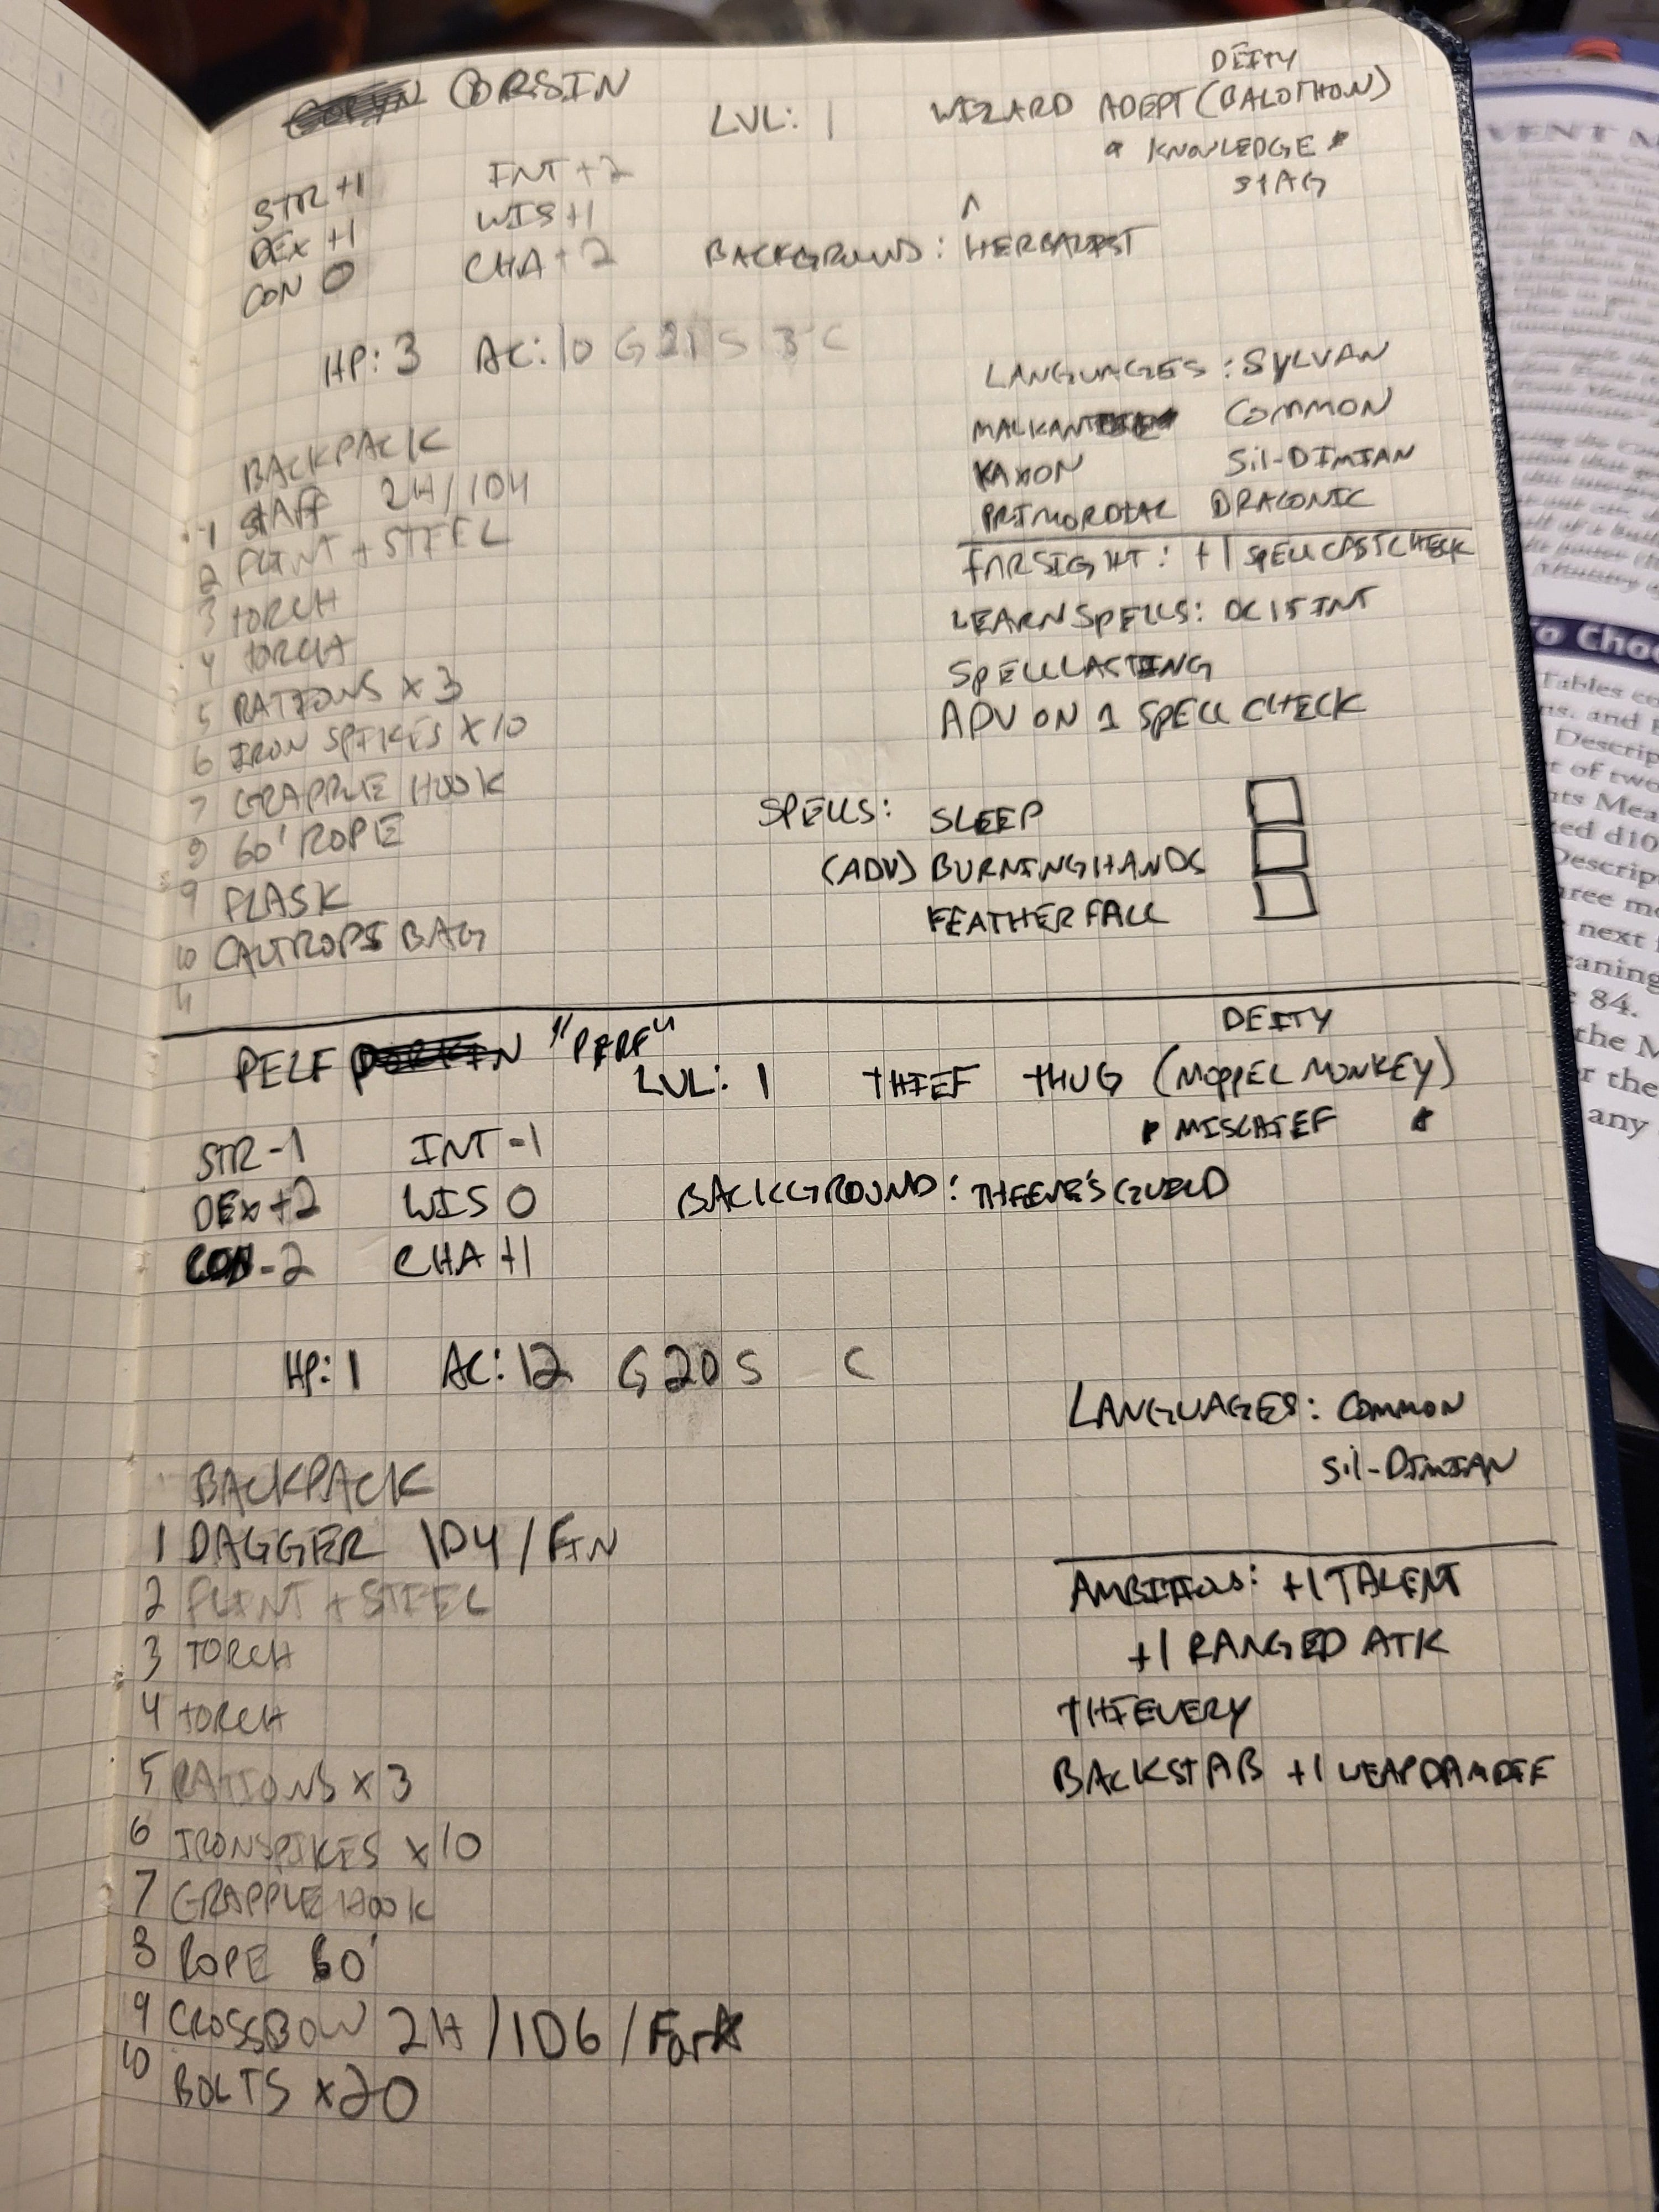 ORSIN
LVL: 1 WIZARD ADEPT (BALOTHON)
DEITY
* KNOWLEDGE *
STAG
STR +1 INT +2
DEX +1 WIS +1
CON 0 CHA +2
BACKGROUND: HERBALIST
HP: 3 AC: 10 G 21 S 3 C
LANGUAGES: SYLVAN
COMMON
KAXON SIL-DIMIAN
PRIMORDIAL DRACONIC
FARSIGHT: +1 SPELLCASTCHECK
LEARN SPELLS: DC 15 INT
SPELLCASTING
ADV ON 1 SPELL CHECK
BACKPACK
1 STAFF 2H/1D4
2 FLINT + STEEL
3 TORCH
4 TORCH
5 RATIONS x 3
6 IRON SPIKES x 10
7 GRAPPLE HOOK
8 60' ROPE
9 FLASK
10 CALTROPS BAG
11
SPELLS: SLEEP
(ADV) BURNING HANDS
FEATHER FALL
PELF
LVL: 1 THIEF THUG (MOPPEL MONKEY)
DEITY
* MISCHIEF *
STR -1 INT -1
DEX +2 WIS 0
CON -2 CHA +1
BACKGROUND: THIEVE'S GUILD
HP: 1 AC: 12 G 20 S C
LANGUAGES: COMMON
SIL-DIMIAN
AMBITIOUS: +1 TALENT
+1 RANGED ATK
THIEVERY
BACKSTAB +1 WEAP DAM
BACKPACK
1 DAGGER 1D4/FIN
2 FLINT + STEEL
3 TORCH
4 TORCH
5 RATIONS x 3
6 IRON SPIKES x 10
7 GRAPPLE HOOK
8 ROPE 60'
9 CROSSBOW 2H/1D6/Far
10 BOLTS x 20
VENT
To Choo
Descrip
of two
next
84.
the M
any